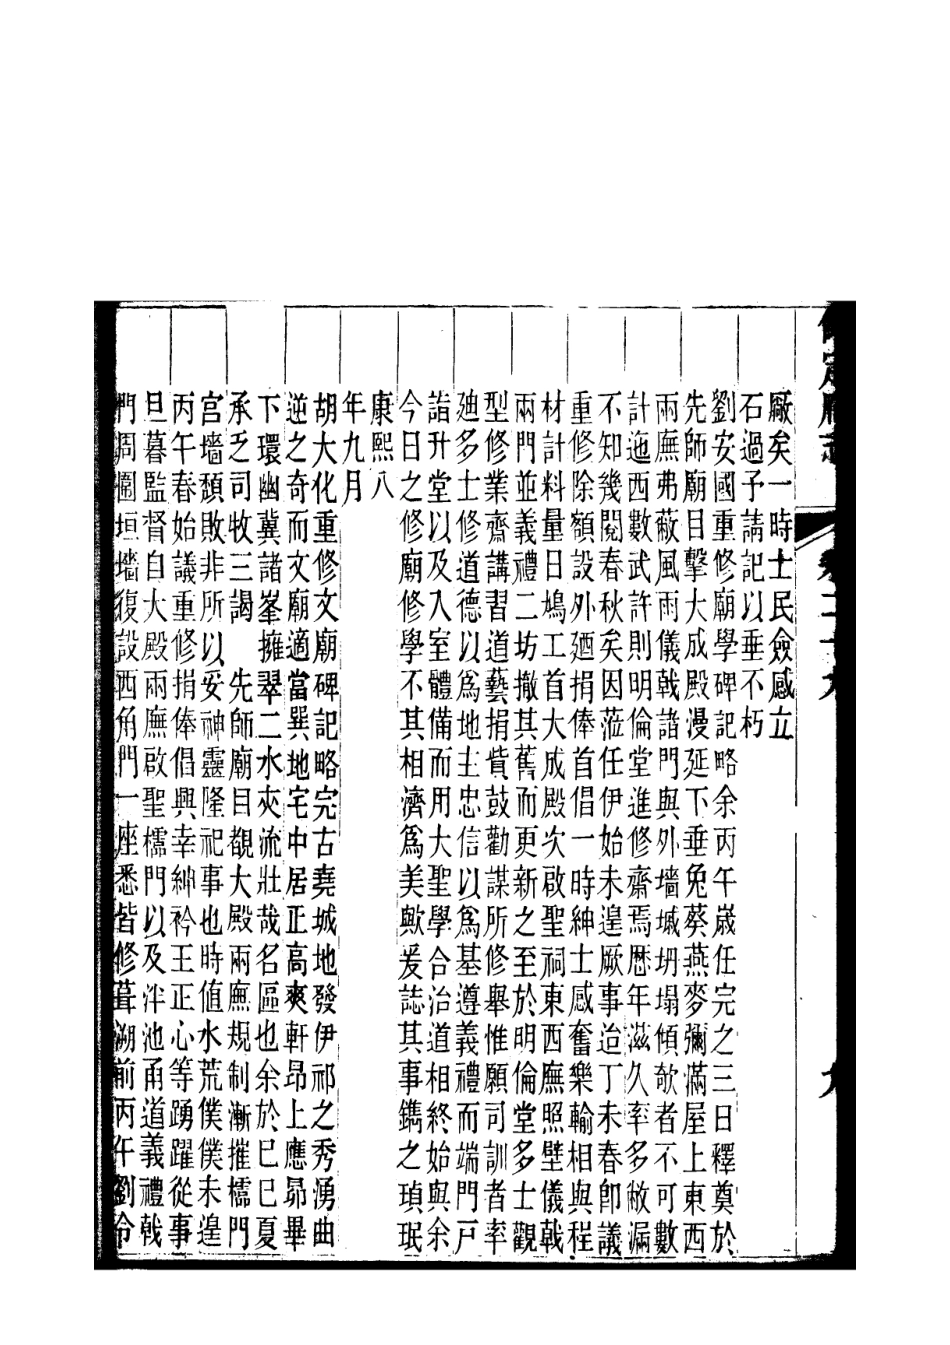 保定府志 卷二十九 九
廠矣一時士民僉感立
石過予請記以垂不朽
劉安國重修廟學碑記略余丙午歲任完之三日釋奠於
先師廟目擊大成殿漫延下垂兔葵燕麥彌滿屋上東西
兩廡弗蔽風雨儀戟諸門與外墻城坍塌傾欹者不可數
計迤西數武許則明倫堂進修齋焉歷年滋久率多敝漏
不知幾閱春秋矣因蒞任伊始未遑厥事迨丁未春卽議
重修除額設外廼捐俸首倡一時紳士感奮樂輸相與程
材計料量日鳩工首大成殿次啟聖祠東西廡照壁儀戟
兩門並義禮二坊撤其舊而更新之至於明倫堂多士觀
型修業齋講習道藝捐貲鼓勸謀所修舉惟願司訓者率
廸多士修道德以爲地主忠信以爲基遵義禮而端門戸
詣升堂以及入室體備而用大聖學合治道相終始與余
今日之修廟修學不其相濟爲美歟爰誌其事鐫之瑣珉
康熙八
年九月
胡大化重修文廟碑記略完古堯城地發伊祁之秀湧曲
逆之奇而文廟適當巽地宅中居正高爽軒昂上應昴畢
下環幽冀諸峯擁翠二水夾流壯哉名區也余於己巳夏
承乏司牧三謁 先師廟目覩大殿兩廡規制漸摧檽門
宮墻頽敗非所以妥神靈隆祀事也時值水荒僕僕未遑
丙午春始議重修捐俸倡興幸紳衿王正心等踴躍從事
旦暮監督自大殿兩廡啟聖檽門以及泮池甬道義禮戟
門周圍垣墻復設西角門一座悉皆修葺溯前丙午劉令